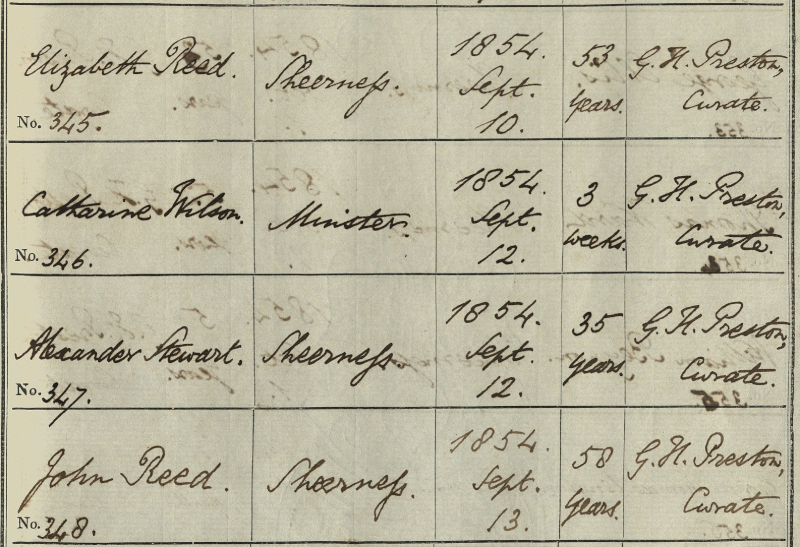 Elizabeth Reed. Sheerness. 1854. Sept. 10. 53 years. G. H. Preston, Curate.
No. 345.
Catharine Wilson. Minister. 1854. Sept. 12. 3 weeks. G. H. Preston, Curate.
No. 346.
Alexander Stewart. Sheerness. 1854. Sept. 12. 35 years. G. H. Preston, Curate.
No. 347.
John Reed. Sheerness. 1854. Sept. 13. 58 years. G. H. Preston, Curate.
No. 348.